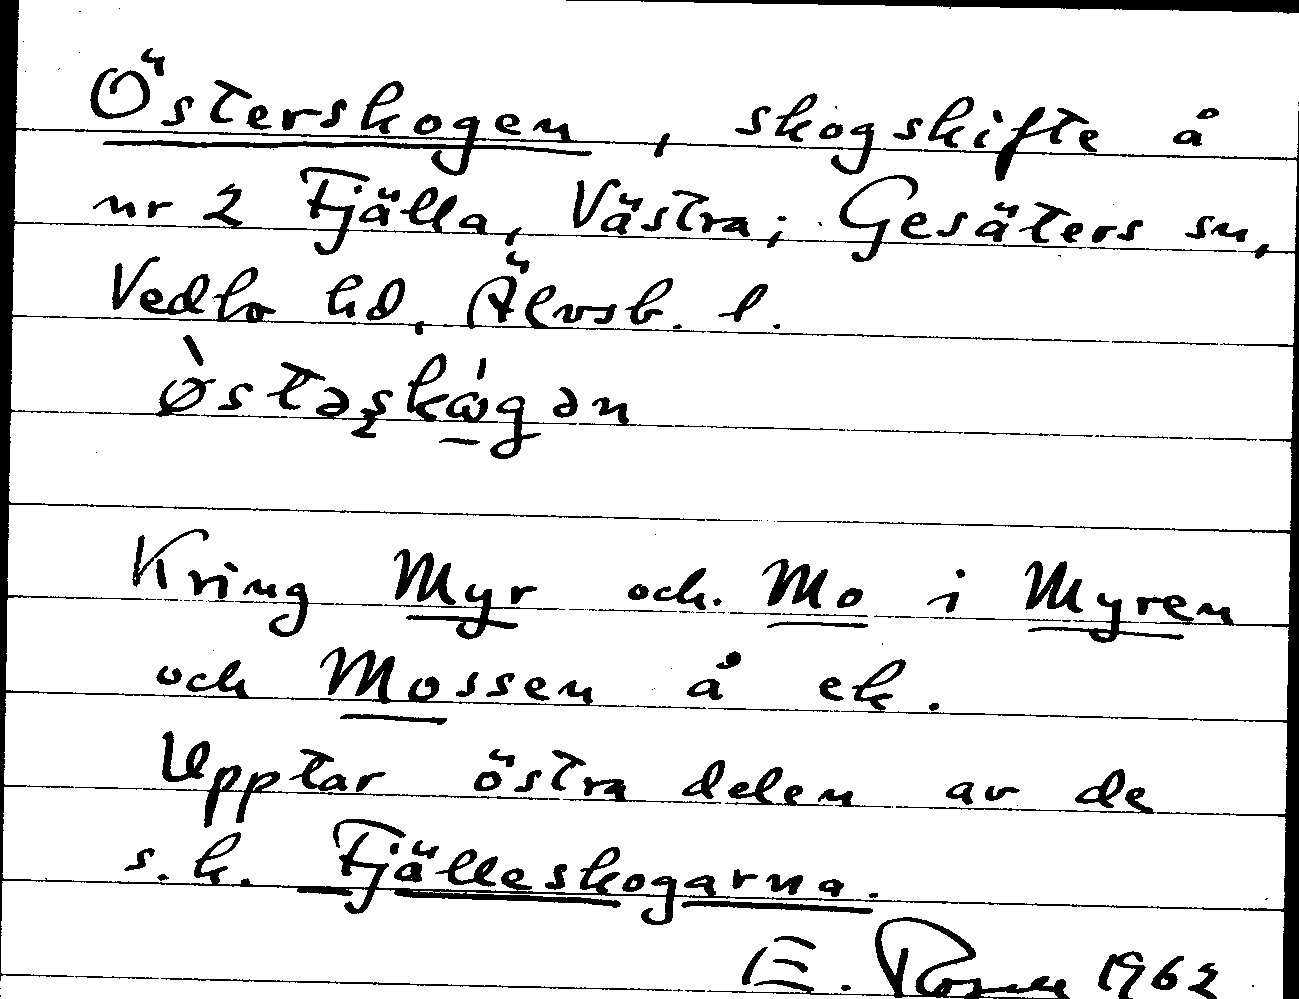 Österskogen, skogskifte å
nr 2 Fjälla, Västra; Gesäters sn,
Vedbo hd, Älvsb. l.
Kring Myr och Mo i Myren
och Mossen å ek.
Upptar östra delen av de
s.k. Fjälleskogarna.
E. 1962